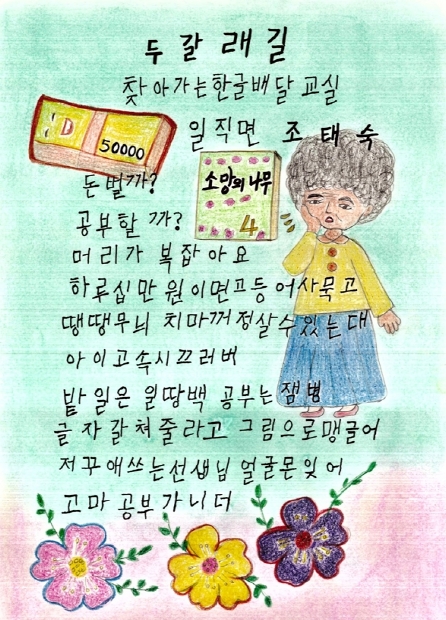 두 갈 래 길
찾아가는한글배달교실
일직면 조태숙
50000
소망의 나무
4
돈벌까?
공부할까?
머리가 복잡아요
하루십만원이면 프등어사묵고
땡땡무늬 치마꺼정살수있는대
아이고속시끄러버
밭일은 일땅백 공부는잼병
글자갈쳐줄라고 그림으로맹글어
저꾸애쓰는선생님 얼굴몬잊어
고마공부가니더